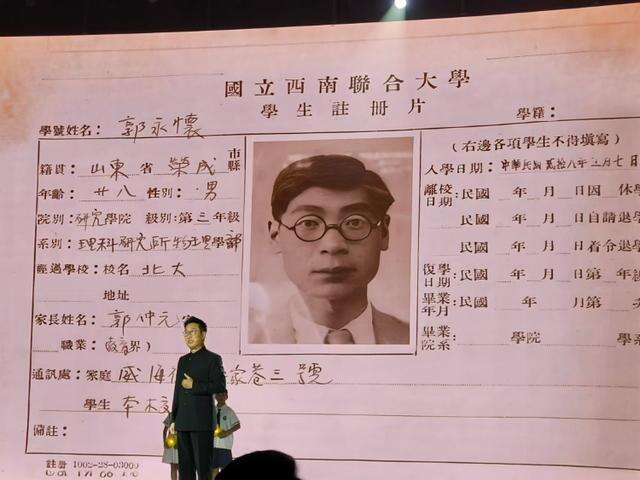 國立西南聯合大學
學生註冊片
學號姓名：郭永懷
學籍：
籍貫：山東省榮成市縣
年齡：廿八 性別：男
院別：研究學院 級別：第三年級
系別：理科研究所物理學部
經過學校：校名 北大
地址
家長姓名：郭仲元
職業：
通訊處：家庭 威海 巷三號
學生
備註：
（右邊各項學生不得填寫）
入學日期：中華民國 八年 月七日
離校日期：民國 年 月 日因 休學
民國 年 月 日自請退學
民國 年 月 日着令退學
復學日期：民國 年 月 日第 年
畢業年月：民國 年 月第
畢業院系： 學院 學系
註冊 1002-28-03000